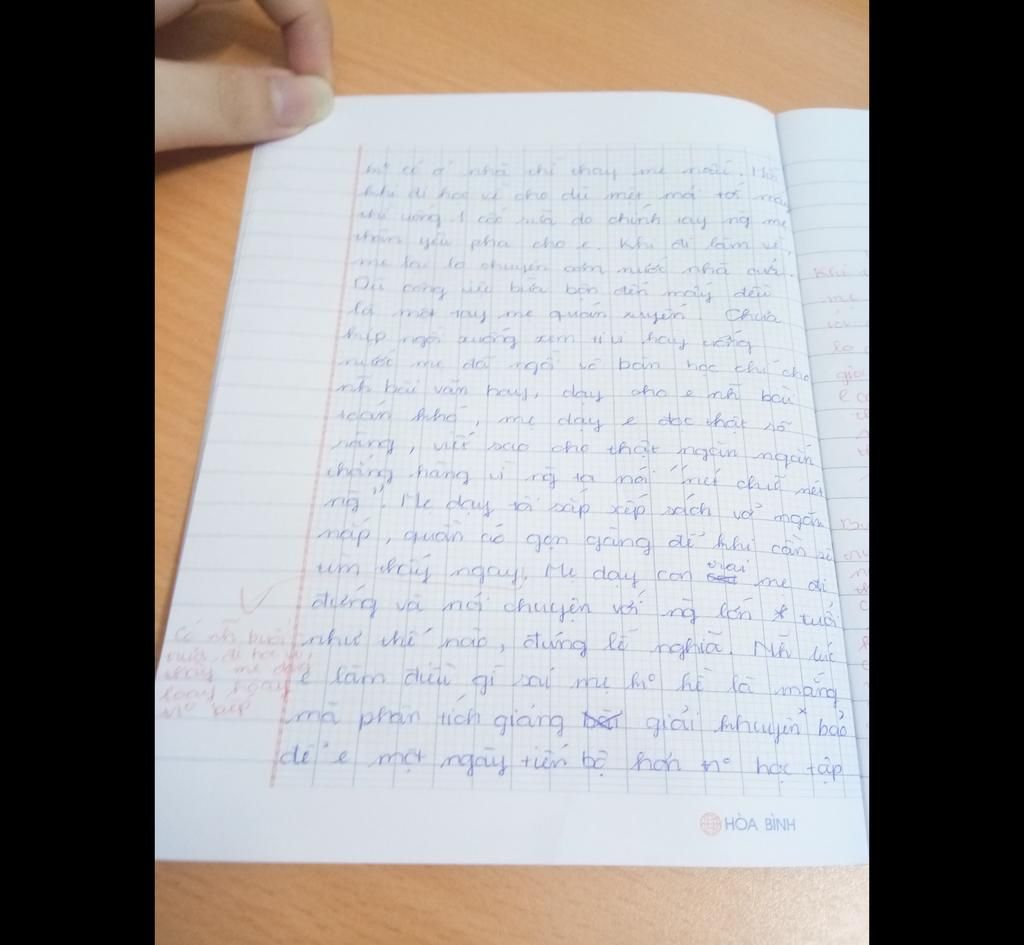 nhà chỉ thấy mẹ
khi đi học về cho dù mệt mỏi tới mấy
chỉ uống 1 cốc sữa do chính tay ng mẹ
thân yêu pha cho e. Khi đi làm về,
mẹ lại lo chuyện cơm nước nhà cửa.
Dù công việc bận bộn đến mấy đều
là một tay mẹ quán xuyến. Chưa
kịp ngồi xuống xem ti vi hay uống
nước mẹ đã ngồi vô bàn học chỉ cho
nh~ bài văn hay, dạy cho e nh~ bài
toán khó, mẹ dạy e đọc thật rõ
ràng, viết sao cho thật ngăn ngắn
thẳng hàng vì ng ta nói "nét chữ nét
ng". Mẹ dạy tôi sắp xếp sách vở ngăn
nắp, quần áo gọn gàng để khi cần sẽ
tìm thấy ngay. Mẹ dạy con trai mẹ đi
đứng và nói chuyện với ng lớn tuổi
như thế nào, đúng lễ nghĩa. Nh~ lúc
e làm điều gì sai mẹ ko hề la mắng
mà phân tích giảng giải khuyên bảo
để e một ngày tiến bộ hơn trg học tập
Có nh~ buổi
đi học về
thấy mẹ đang
loay ngay
HÒA BÌNH
Khi
mẹ
lo